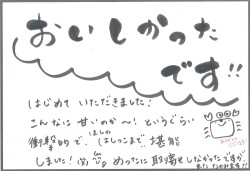 おいしかった
です!!
はじめていただきました!
こんなに甘いのか〜!というぐらい
衝撃的で、はしの
はしっこまで堪能
しました!(笑)めったに取り寄せしなかったですが、
またたのみます!!